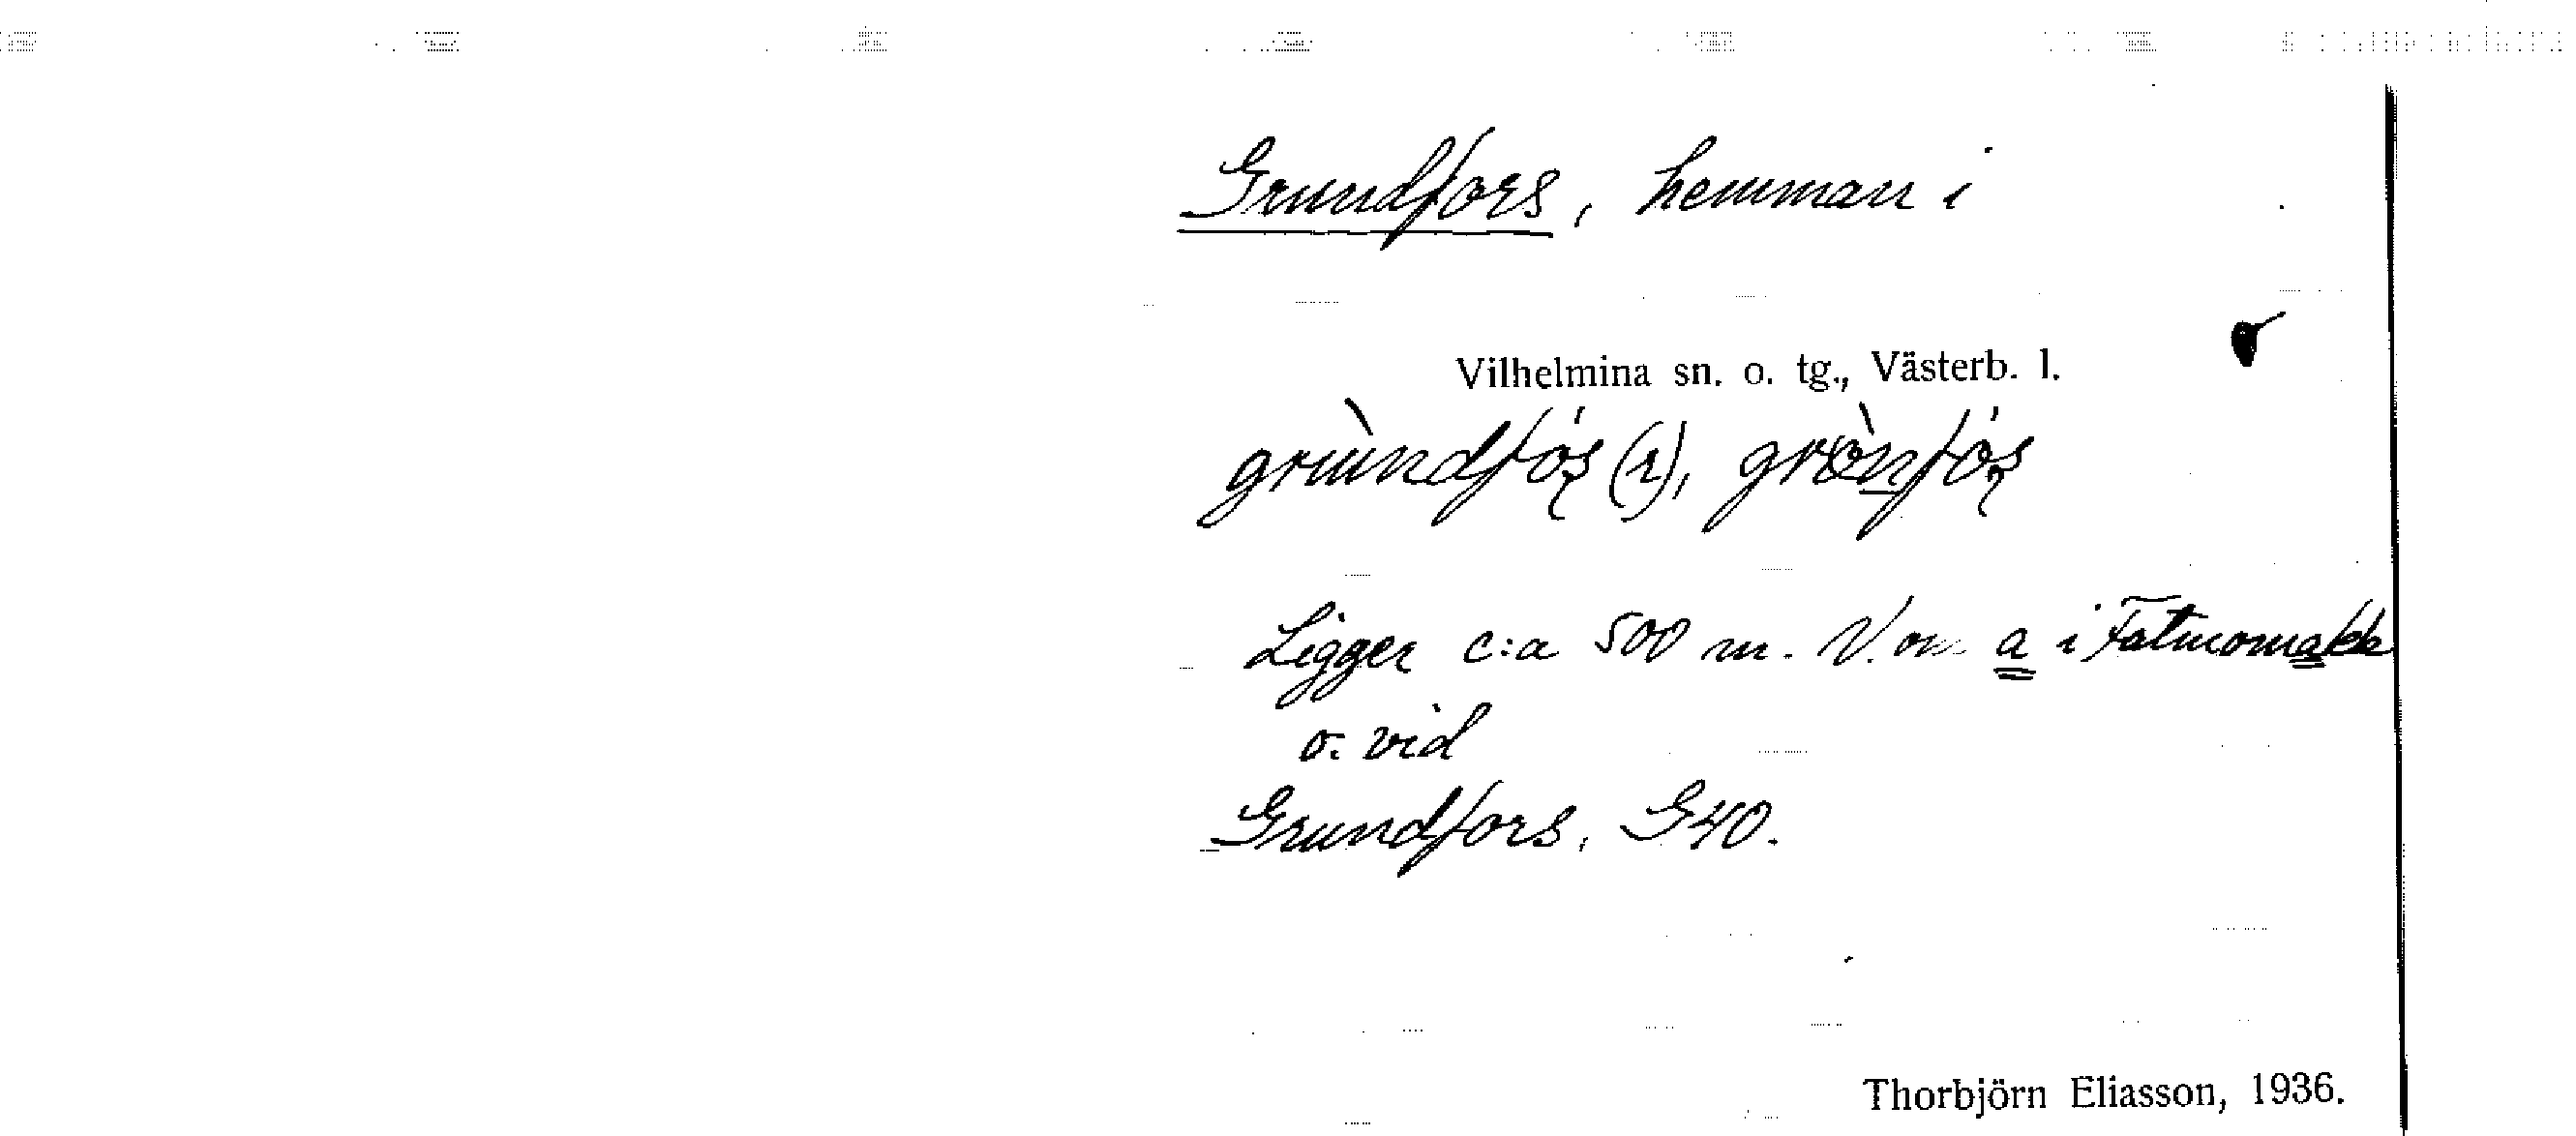 Grundfors, hemman i
Vilhelmina sn. o. tg., Västerb. l.
grùndfós (r), grònfós
Ligger c:a 500 m. V. om a i Fatmomakk
o. vid
Grundfors, G40.
Thorbjörn Eliasson, 1936.